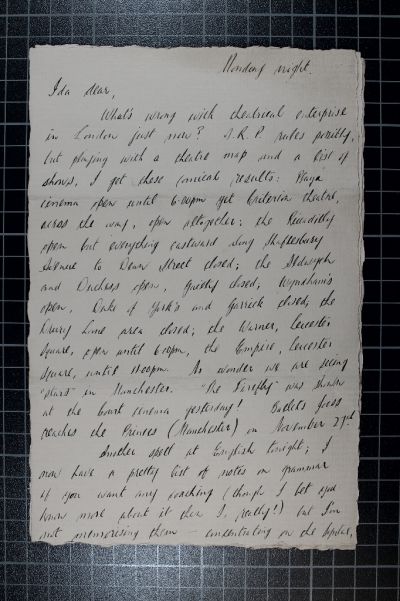 Monday night.
Ida dear,
What's wrong with theatrical enterprise
in London just now? A.R.P. rules possibly,
but playing with a theatre map and a list of
shows, I get these comical results: Plaza
cinema open until 6.0pm yet Criterion theatre,
across the way, open altogether; the Piccadilly
open but everything eastward along Shaftesbury
Avenue to Dean Street closed; the Aldwych
and Duchess open, Gaiety closed; Wyndham's
open, Duke of York's and Garrick closed; the
Drury Lane area closed; the Warner, Leicester
Square, open until 6.0pm, the Empire, Leicester
Square, until 10.0pm. No wonder we are seeing
"stars" in Manchester. "The Firefly" was shown
at the Court cinema yesterday! Ballets Jooss
reaches the Princes (Manchester) on November 27th
Another spell at English tonight; I
now have a pretty list of notes on grammar
if you want any coaching (though I bet you
know more about it than I, really!) but I'm
not memorising them – concentrating on the